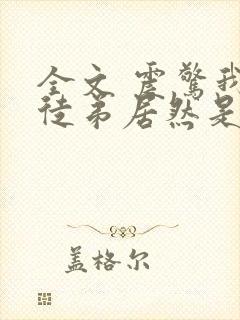 全文 震惊我
徒弟居然是
盖格尔